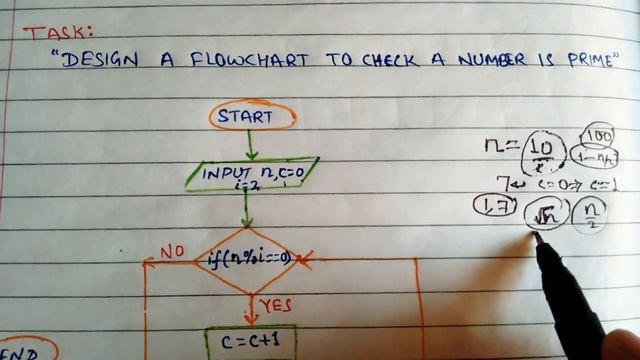 TASK:
"DESIGN A FLOWCHART TO CHECK A NUMBER IS PRIME"
START
INPUT n, c=0
i=2
n= 10 100
1-n/2
7 c=0 c=1
1,7 √n n/2
NO if(n%i==0)
YES
c=c+1
END